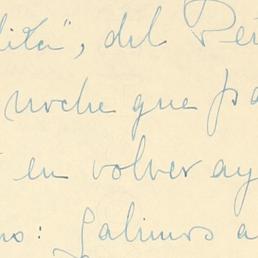 lita", del Per
noche que pa
en volver ay
no: Salimos a